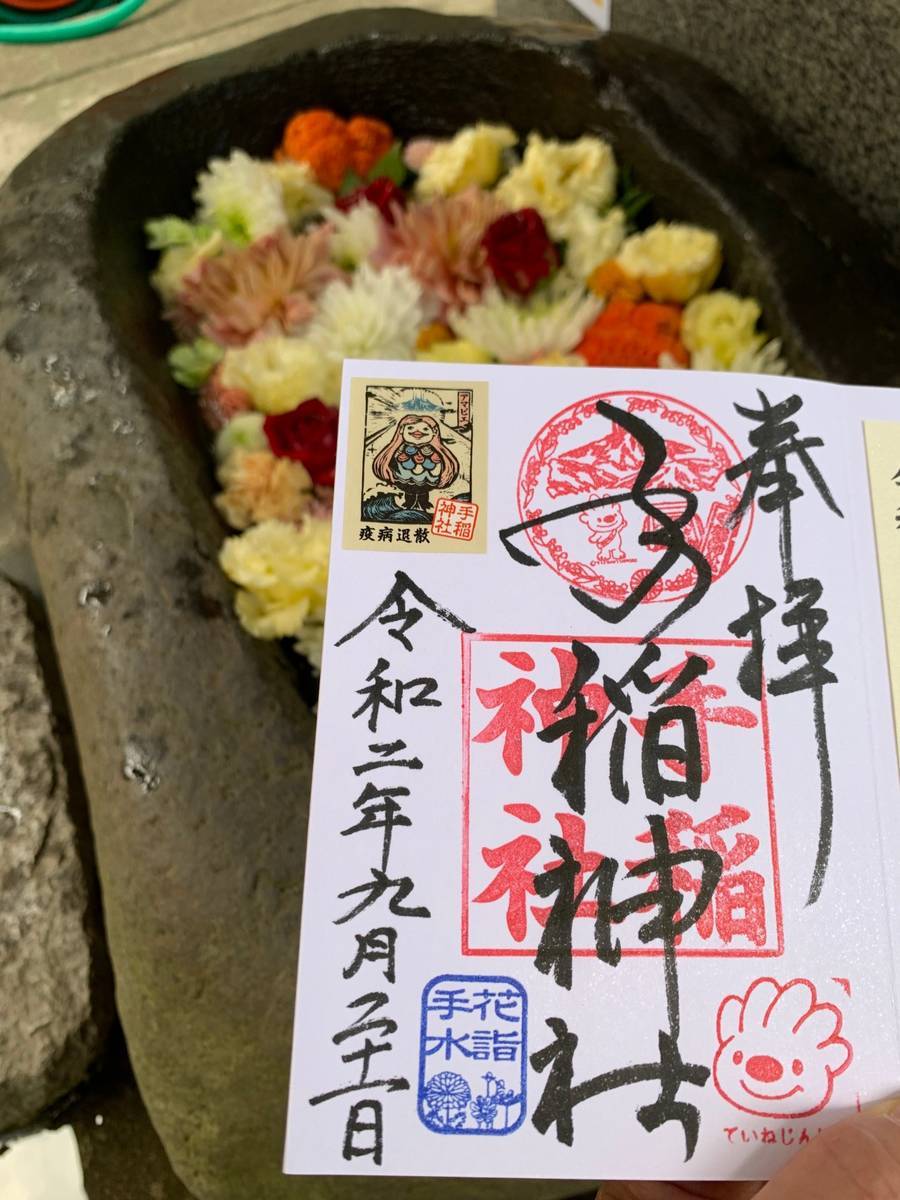 奉拝
手稲神社
手稲
神社
ていねじん
アマビエ
手稲
神社
疫病退散
令和二年九月二十一日
花詣
手水